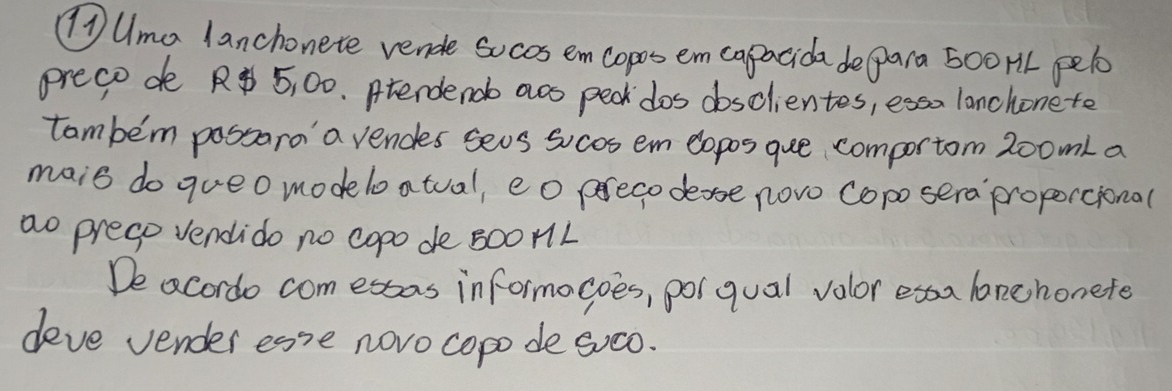 11 Uma lanchonete vende sucos em copos em capacidade para 500ML pelo
preço de R$ 5,00. Atendendo aos pedidos dos clientes, essa lanchonete
também passará a vender seus sucos em copos que comportam 200mL a
mais do que o modelo atual, e o preço desse novo copo será proporcional
ao preço vendido no copo de 500ML
De acordo com essas informações, por qual valor essa lanchonete
deve vender esse novo copo de suco.